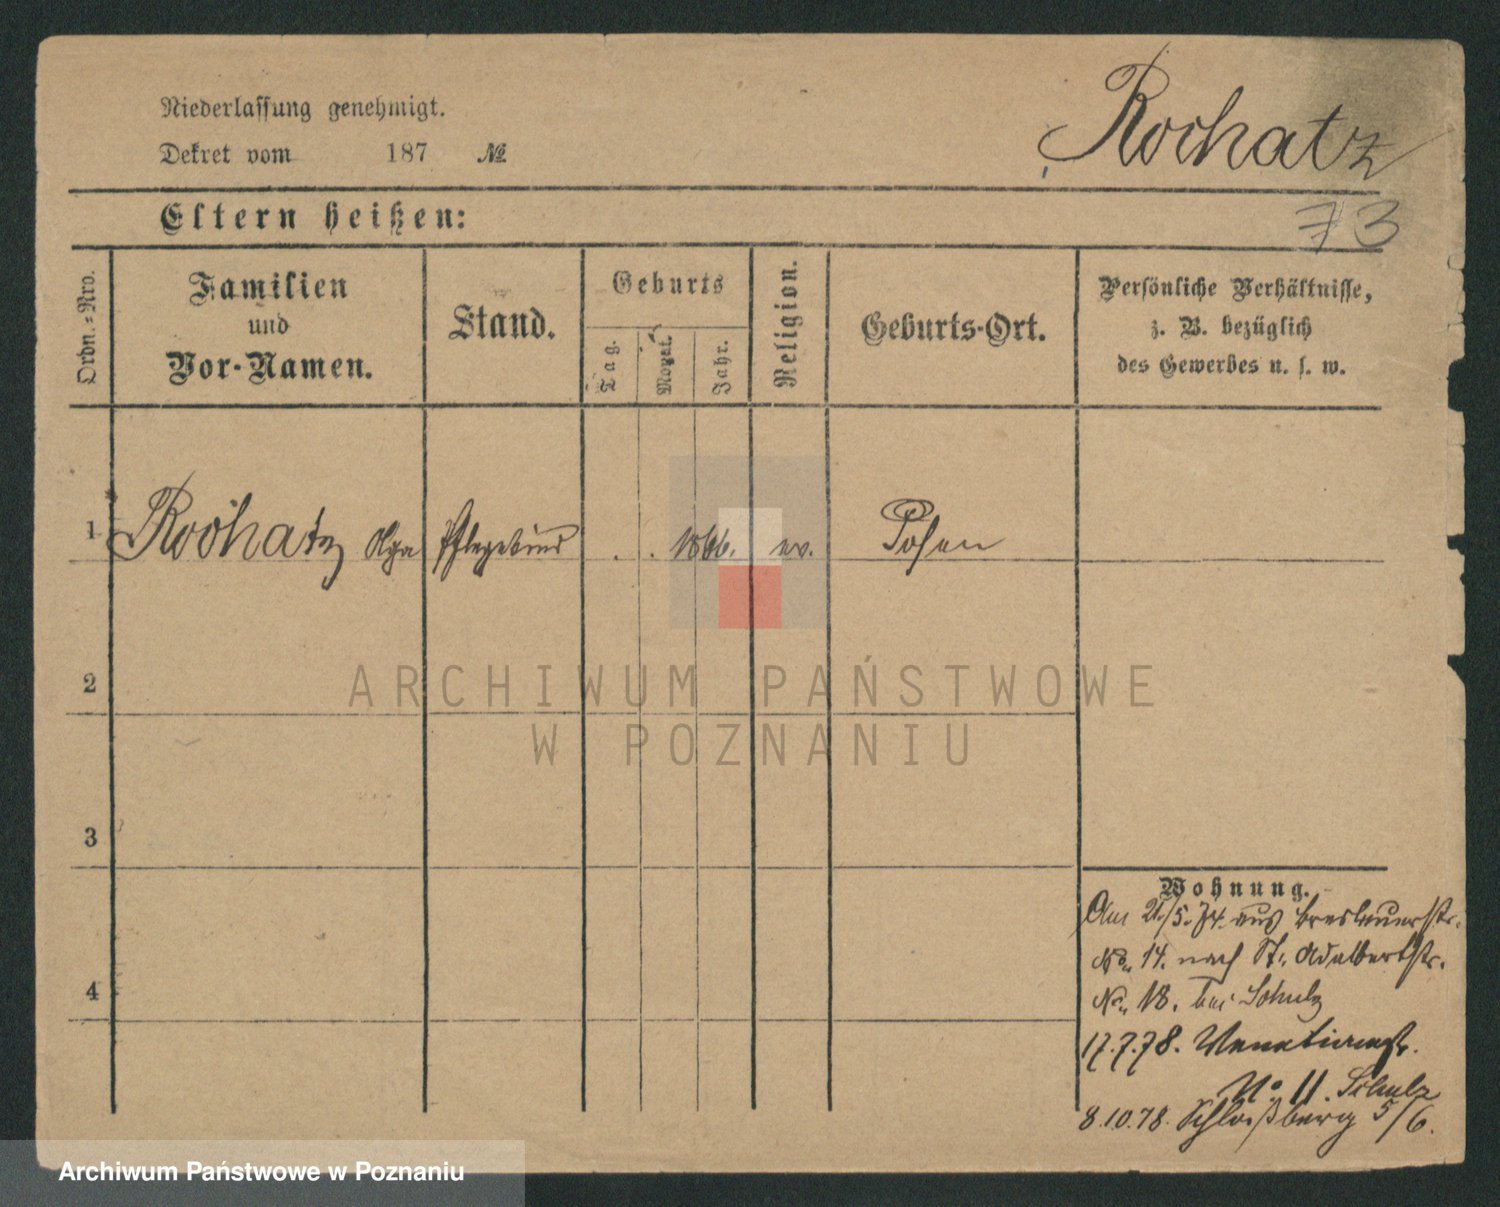 Niederlassung genehmigt.
Dekret vom 187 №
Rochatz
73
Eltern heißen:
Ordn.-Nro.
Familien
und
Vor-Namen.
Stand.
Geburts
Tag.
Monat.
Jahr.
Religion.
Geburts-Ort.
Persönliche Verhältnisse,
z. B. bezüglich
des Gewerbes u. s. w.
1 Rochatz Olga Pflegekind . . 1866. ev. Posen
2
3
4
Wohnung.
Am 21/5.74. aus Breslauerstr.
No. 14. nach St. Adalbertstr.
No. 18. bei Schulz
17.7.78. Venetianerstr.
No 11. Schulz
8.10.78. Schloßberg 5/6.
ARCHIWUM PAŃSTWOWE
W POZNANIU
Archiwum Państwowe w Poznaniu